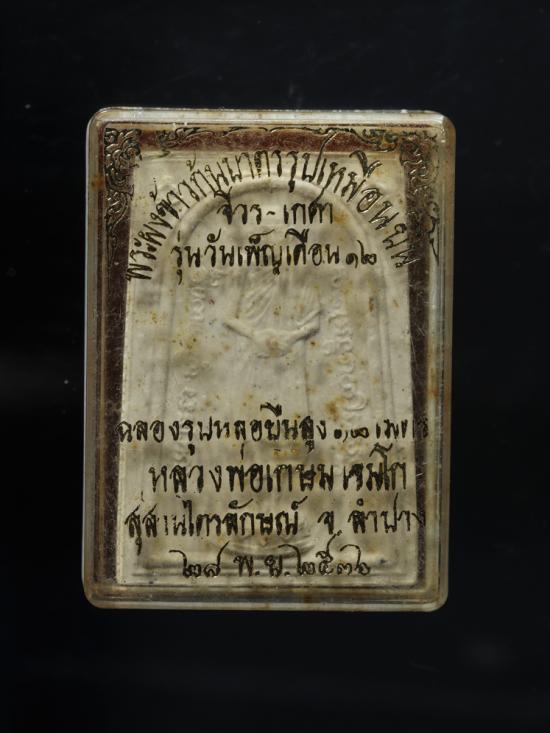 พระผงข้าวก้นบาตรรูปเหมือนนพ
จีวร-เกศา
รุ่นวันเพ็ญเดือน ๑๒
ฉลองรูปหล่อยืนสูง ๑๒ เมตร
หลวงพ่อเกษม เขมโก
สุสานไตรลักษณ์ จ.ลำปาง
๒๘ พ.ย. ๒๕๓๖